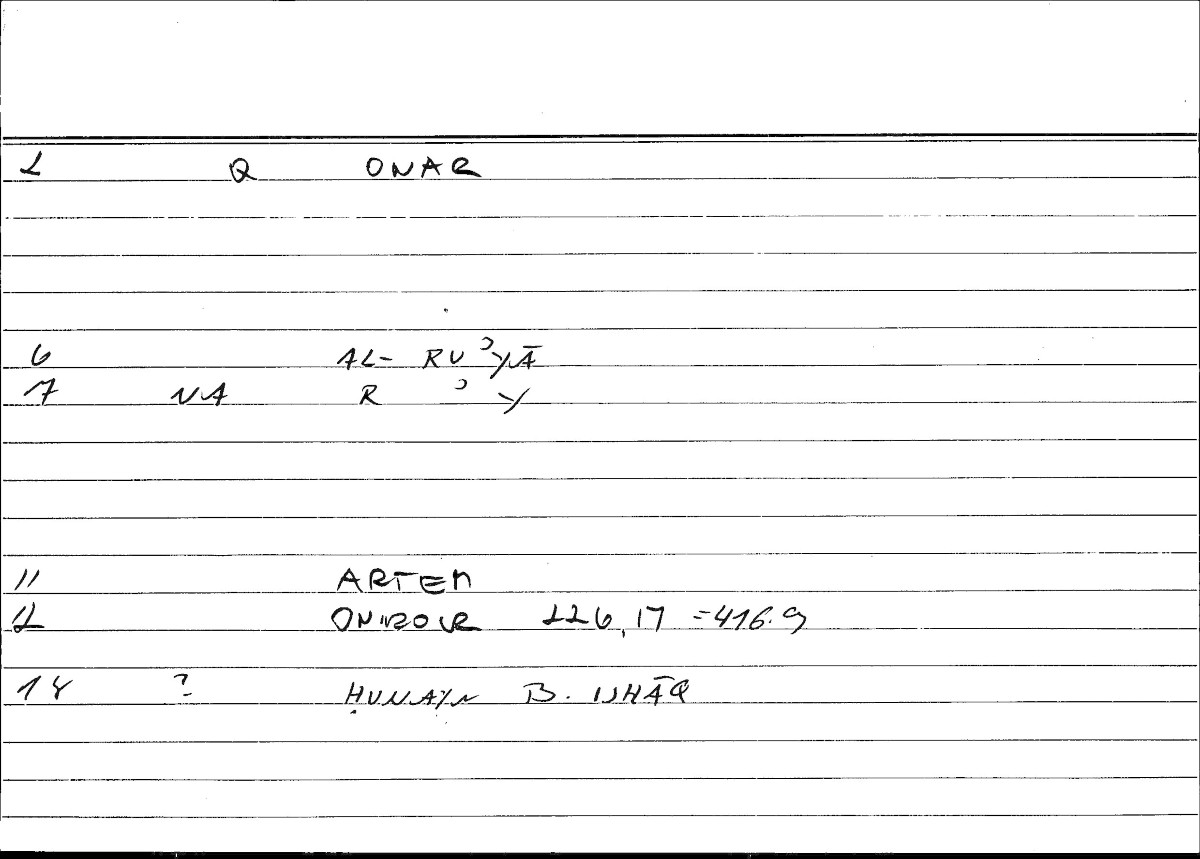 2 Q ONAR
6 AL- RUʾYĀ
7 NA R ʾ Y
11 ARTEM
12 ONIROCR 226,17 =416.9
18 ? ḤUNAYN B. ISḤĀQ